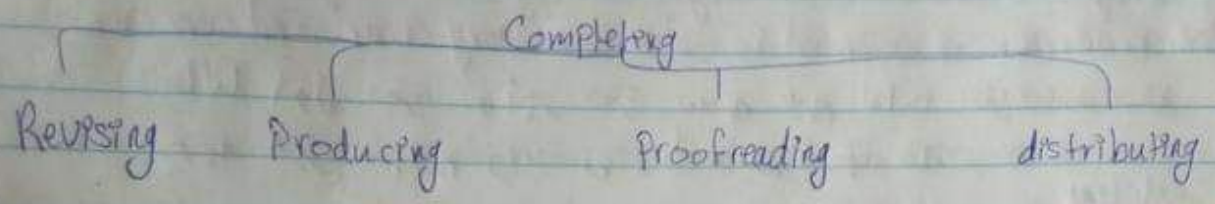 Completing
Revising Producing Proofreading distributing